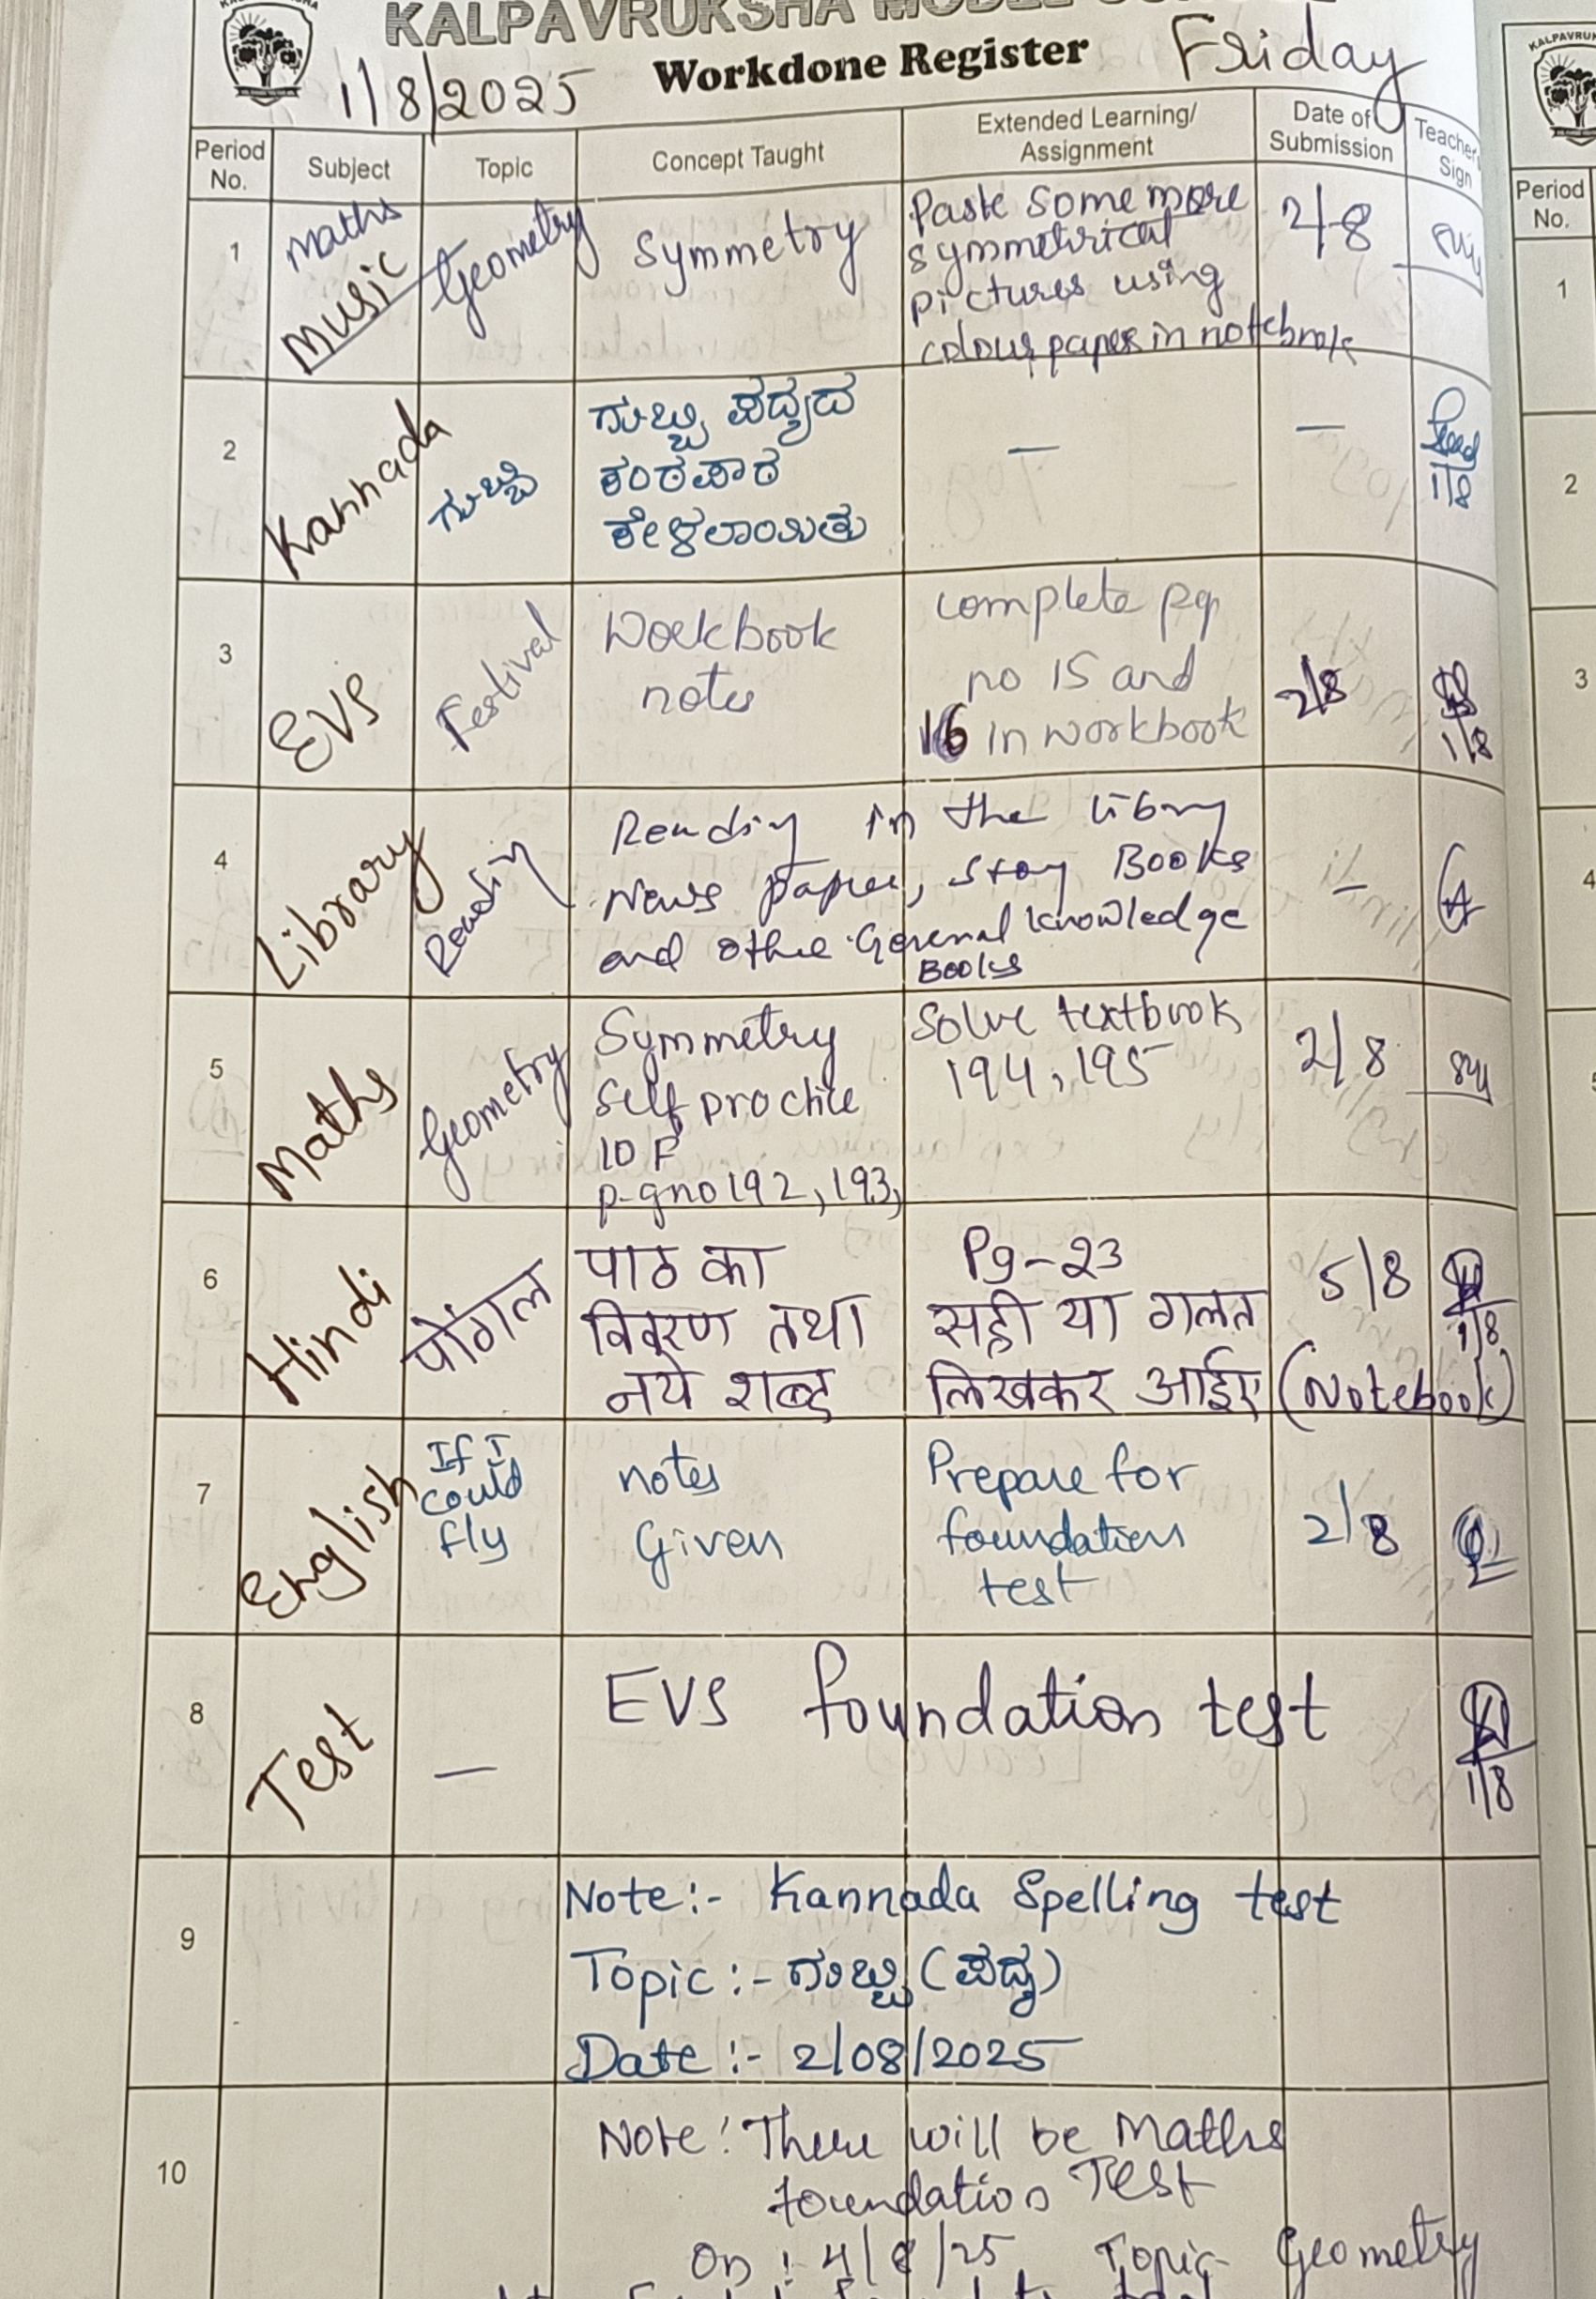 KALPAVRUKSHA MODEL
1/8/2025
Workdone Register
Friday
Period No.
Subject
Topic
Concept Taught
Extended Learning/
Assignment
Date of
Submission
Teacher
Sign
1
maths
Music
Geometry
Symmetry
Paste some more
symmetrical
pictures using
colour paper in notebook
2/8
2
Kannada
ಗುಬ್ಬಿ
ಗುಬ್ಬಿ ಪದ್ಯದ
ಕಂಠಪಾಠ
ಕೇಳಲಾಯಿತು
—
—
1/8
3
EVS
Festival
Workbook
notes
complete pg
no 15 and
16 in workbook
2/8
1/8
4
Library
Reading
Reading in the library
News paper, story Books
and other General knowledge
Books
–
5
Maths
Geometry
Symmetry
Self practice
10 F
p-gno 192, 193,
Solve textbook
194, 195
2/8
6
Hindi
पोंगल
पाठ का
विवरण तथा
नये शब्द
Pg-23
सही या गलत
लिखकर आईए (Notebook)
5/8
1/8
7
English
If I
could
fly
notes
Given
Prepare for
foundation
test
2/8
8
Test
—
EVS foundation test
1/8
9
Note:- Kannada Spelling test
Topic:- ಗುಬ್ಬಿ (ಪದ್ಯ)
Date:- 2/08/2025
10
Note: There will be Maths
foundation Test
On: 4/8/25 Topic- Geometry
KALPAVRU
Period
No.
1
2
3
4